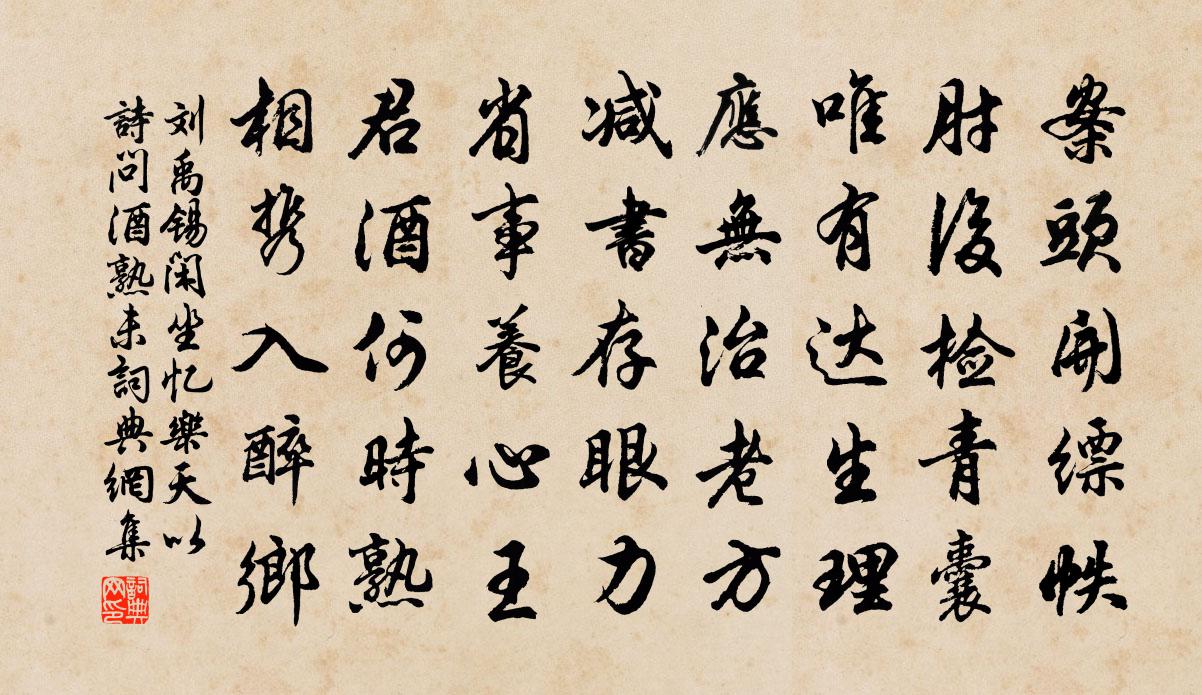 案頭開縹帙
肘後检青囊
唯有达生理
應無治老方
减書存眼力
省事養心王
君酒何時熟
相携入醉鄉
刘禹锡闲坐忆樂天以
詩问酒熟未詞典網集
詞典网印